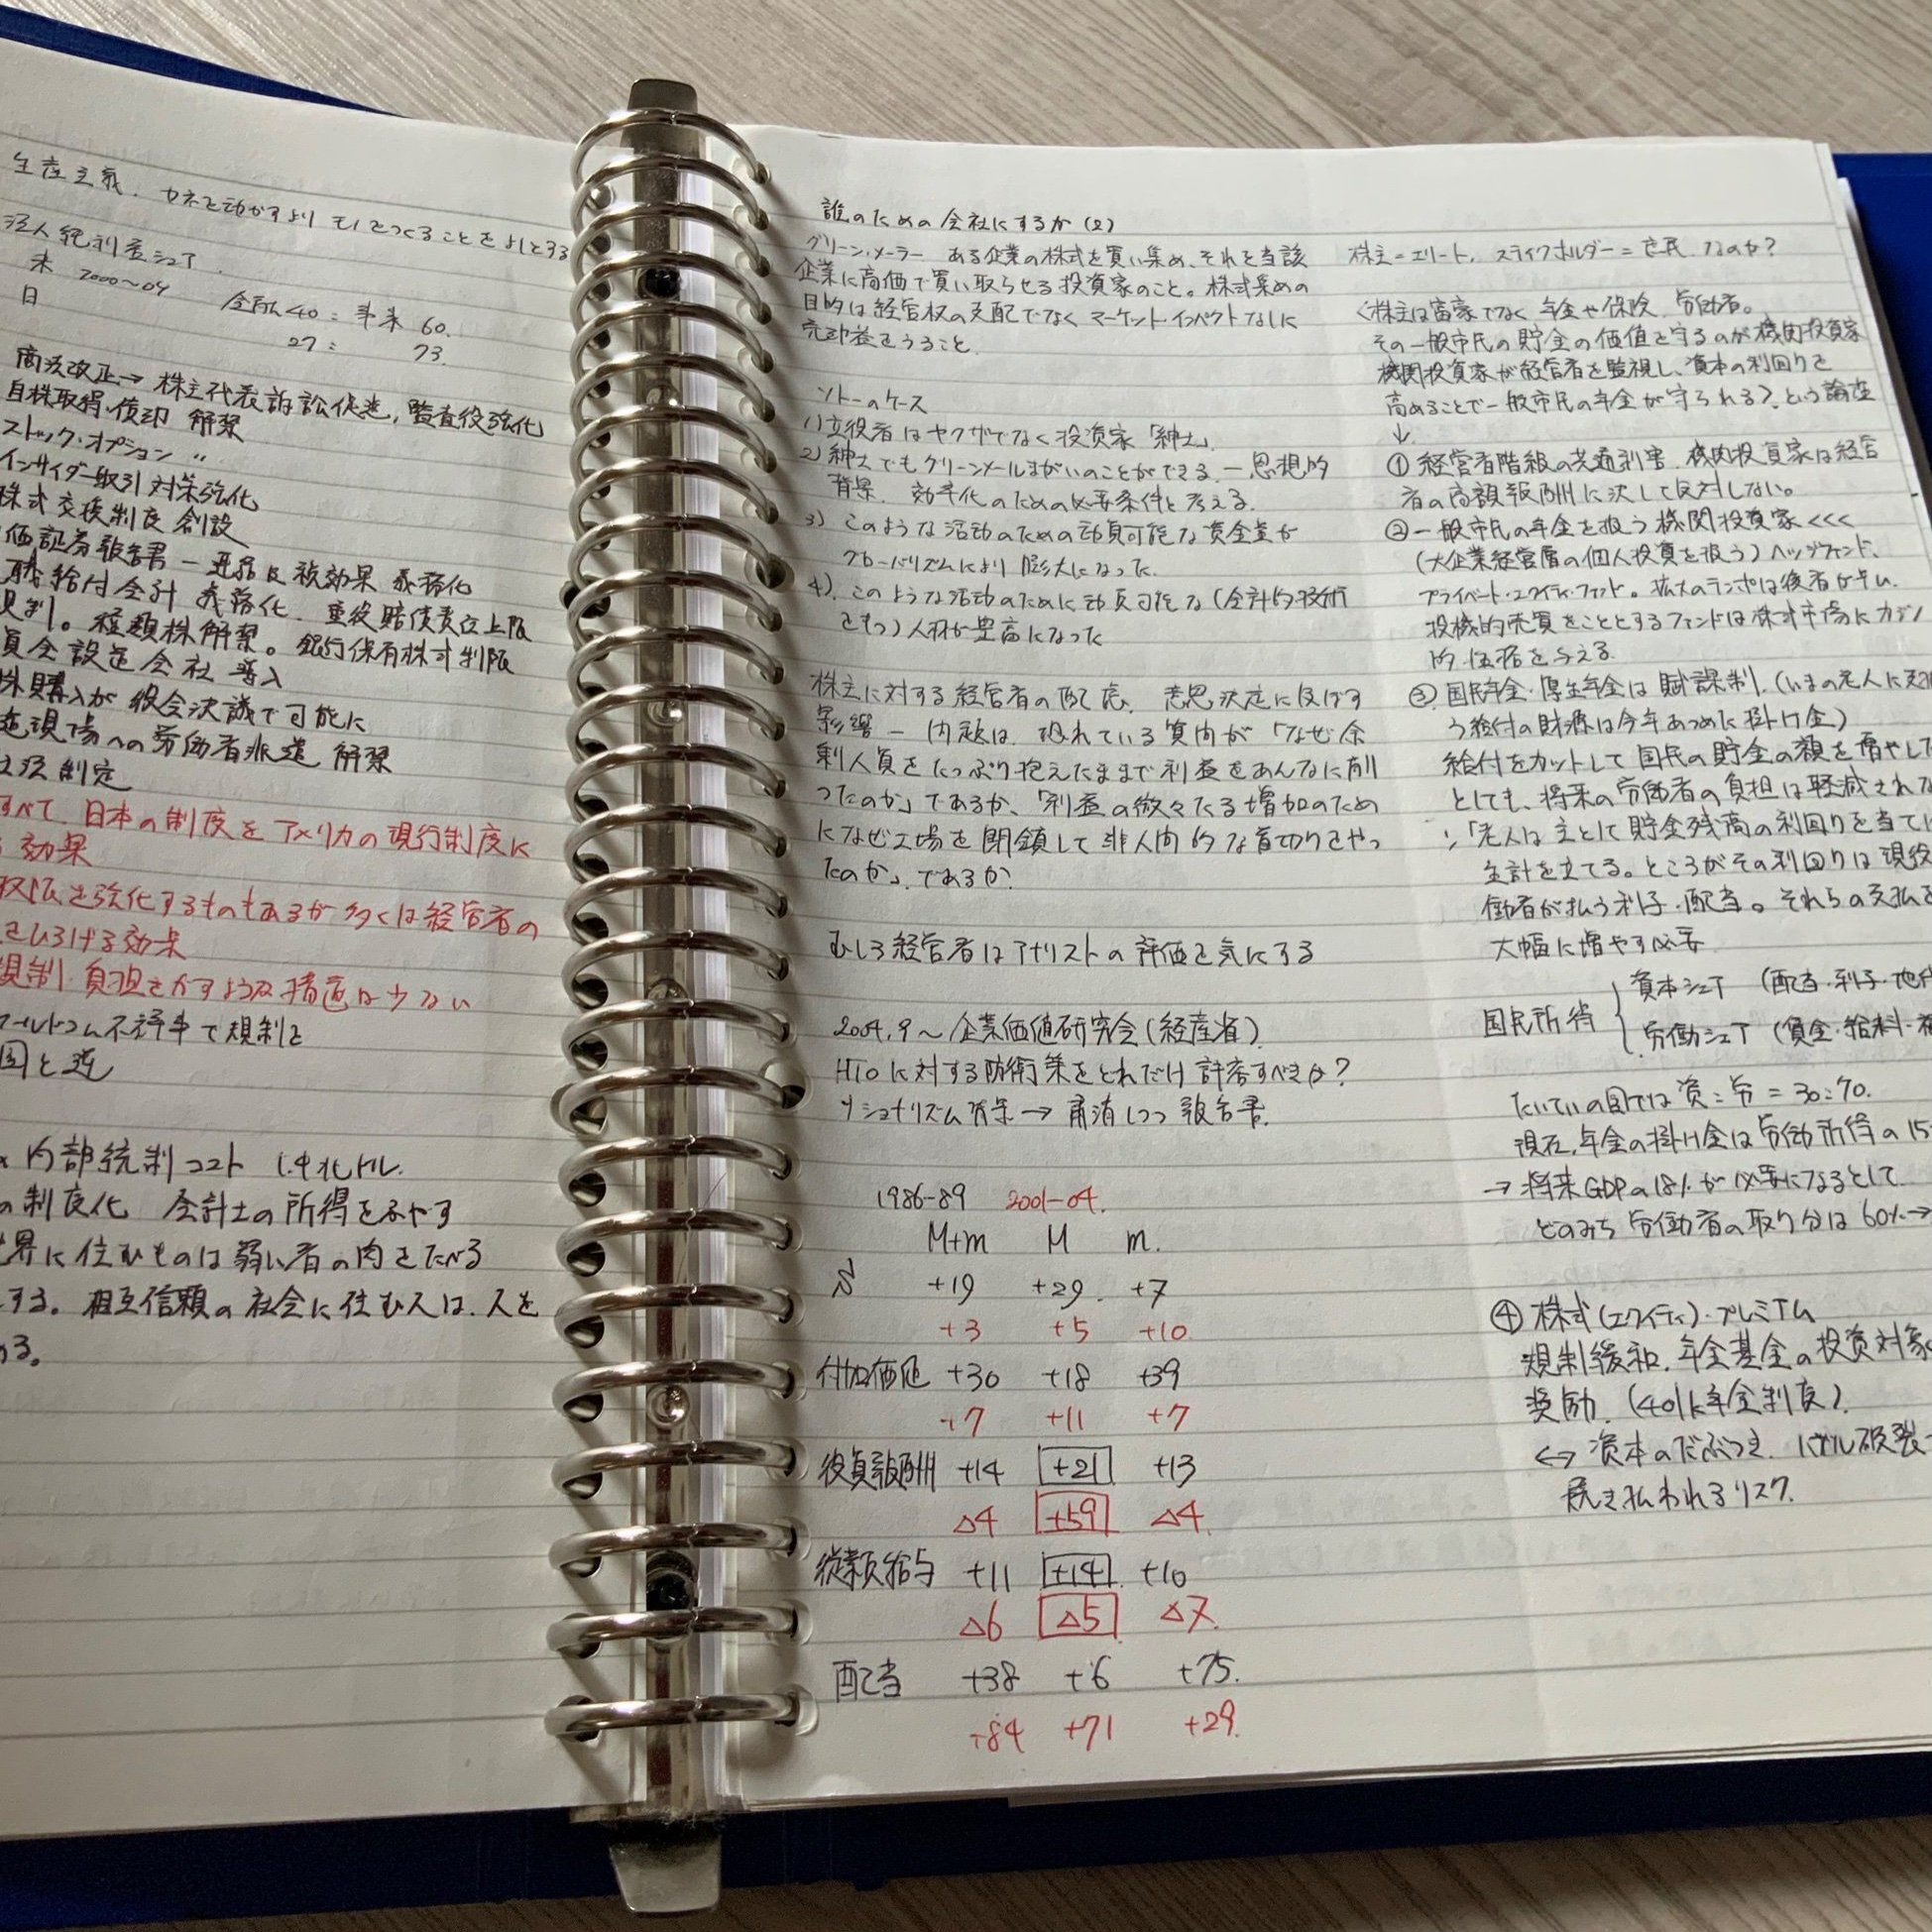 生産主義. カネを動かすよりモノをつくることをよしとする
法人純利益シェア.
米 2000〜04 金融40 : 事業 60.
日 27 : 73.
商法改正→ 株主代表訴訟促進, 監査役強化
自株取得・償却 解禁
ストック・オプション 〃
インサイダー取引 対策強化
株式交換制度 創設
価証券報告書 —
職給付会計 義務化. 重役賠償責任上限
規制。種類株解禁。銀行保有株式制限
員会設置会社 導入
株購入が 役会決議で可能に
造現場への労働者派遣 解禁
法 制定
すべて, 日本の制度を アメリカの現行制度に
効果
権限を強化するものもあるが 多くは経営者の
をひろげる効果
規制・負担をかすような措置は少ない
ワールドコム不祥事で規制を
国と逆
内部統制コスト 1.4兆ドル.
の制度化 会計士の所得をふやす
世界に住むものは弱い者の肉をたべる
する。相互信頼の社会に住む人は. 人を
める。
誰のための会社にするか (2)
グリーン・メーラー ある企業の株式を買い集め、それを当該
企業に高価で買い取らせる投資家のこと。株式集めの
目的は経営权の支配でなく マーケット・インパクトなしに
売却益をうること.
ソトーのケース
1) 立役者はヤクザでなく投資家「紳士」
2) 紳士でもグリーンメールまがいのことができる — 思想的
背景. 効率化のための必要条件と考える.
3) このような活動のための動員可能な資金量が
グローバリズムにより膨大になった.
4). このような活動のために動員可能な (会計的技術
をもつ) 人材が豊富になった
株主に対する経営者の配慮. 意思決定に及ぼす
影響 — 問題は. 恐れている質問が「なぜ余
剰人員をたっぷり抱えたままで利益をあんなに削
ったのか」であるか、「利益の微々たる増加のため
になぜ工場を閉鎖して非人間的な首切りをやっ
たのか」. であるか.
むしろ経営者はアナリストの評価を気にする
2004.9〜 企業価値研究会 (経産省).
HTOに対する防衛策をどれだけ許容すべきか?
ナショナリズム背景 →
1986-89 2001-04.
M+m M m.
+19 +29. +7
+3 +5 +10
付加価値 +30 +18 +39
+7 +11 +7
役員報酬 +14 +21 +13
△4 +59 △4.
従業員給与 +11 +14. +10
△6 △5 △7.
配当 +38 +6 +75.
+84 +71 +29.
株主=エリート, ステイクホルダー=庶民 なのか?
<株主は富豪でなく 年金や保険. 労働者。
その一般市民の貯金の価値を守るのが機関投資家
機関投資家が経営者を監視し、資本の利回りを
高めることで一般市民の年金が守られる?. という論座
↓
① 経営者階級の共通利害. 機関投資家は経営
者の高額報酬に決して反対しない。
② 一般市民の年金を扱う機関投資家 <<<
(大企業経営層の個人投資を扱う) ヘッジファンド、
プライベート・エクイティ・ファンド。拡大のテンポは後者が早い.
投機的売買をこととするファンドは株式市場にカジノ
的 性格を与える.
③ 国民年金・厚生年金は賦課制. (いまの老人に支払
う給付の財源は今年あつめた掛け金)
給付をカットして国民の貯金の額を増やした
としても、将来の労働者の負担は軽減されな
∵「老人は主として貯金残高の利回りを当てに
生計を立てる。ところがその利回りは現役
働者が払う利子・配当。それらの支払を
大幅に増やす必要
国民所得 { 資本シェア (配当・利子・地代
労働シェア (賃金・給料・福
たいていの国では 資 : 労 = 30:70.
現在, 年金の掛け金は労働所得の15
→ 将来GDPの18%が必要になるとして
どのみち労働者の取り分は60%→
④ 株式 (エクイティ)・プレミアム
規制緩和. 年金基金の投資対象
奨励. (401k年金制度).
↔ 資本のだぶつき. バブル破裂
尻を払われるリスク.